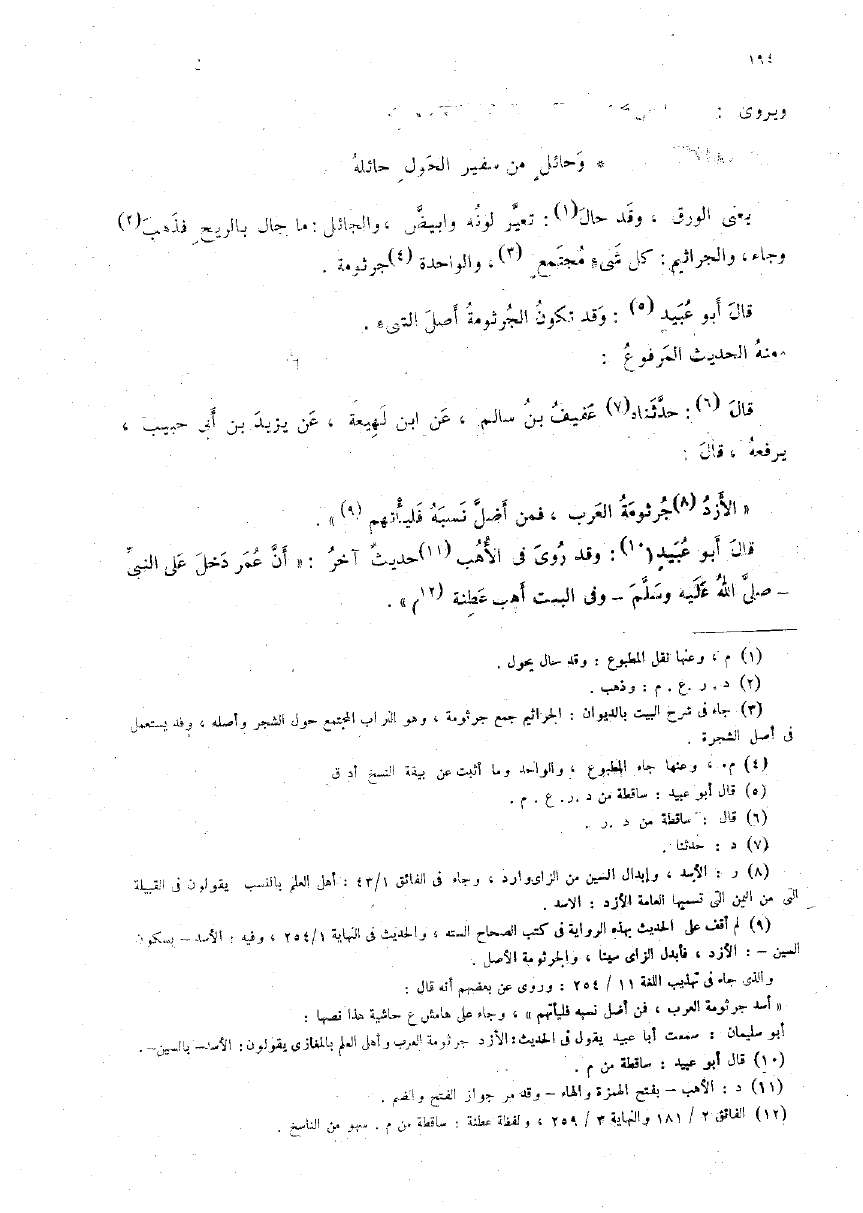 ١٩٤
ويروى :
* وَحائلٍ من سفير الحَول حائلهُ
يعنى الورق ، وقَد حالَ(١) : تعيَّر لونُه وابيضَّ ، والجائل : ما جال بالريح فذَهبَ(٢)
وجاء ، والجراثيم : كل شَىءٍ مُجتَمع (٣) ، والواحدة (٤) جرثومة .
قالَ أَبو عُبَيد (٥) : وَقد تكونُ الجُرثومةُ أَصلَ الشىءِ .
منهُ الحديث المَرفوعُ :
قالَ (٦) : حدَّثَناه(٧) عَفيفُ بنُ سالم ، عَن ابن لَهِيعةَ ، عَن يزيدَ بن أَبى حبيب ،
يرفعهُ ، قالَ :
« الأَزدُ (٨) جُرثومَةُ العَرب ، فمن أَضلَّ نَسبَهُ فَليأْتهم (٩) » .
قالَ أَبو عُبَيد(١٠) : وقد رُوىَ فى الأُهُب (١١) حديثٌ آخرُ : « أَنَّ عُمَر دَخلَ عَلى النبىِّ
– صلىَّ اللهُ عَلَيه وسَلَّمَ – وفى البيت أَهب عَطِنة (١٢) » .
(١) م ، وعنها نقل المطبوع : وقد حال يحول .
(٢) د . ر . ع . م : وذهب .
(٣) جاء فى شرح البيت بالديوان : الجراثيم جمع جرثومة ، وهو التراب المجتمع حول الشجر وأصله ، وقد يستعمل
فى أصل الشجرة .
(٤) م ، وعنها جاء المطبوع ، والواحد وما أثبت عن بقية النسخ أدق
(٥) قال أبو عبيد : ساقطة من د . ر . ع . م .
(٦) قال : ساقطة من د . ر .
(٧) د : حدثنا .
(٨) ر : الأسد ، وإبدال السين من الزاى وارد ، وجاء فى الفائق ٤٣/١ : أهل العلم بالنسب يقولون فى القبيلة
التى من اليمن التى تسميها العامة الأزد : الاسد .
(٩) لم أقف على الحديث بهذه الرواية فى كتب الصحاح الستة ، والحديث فى النهاية ٢٥٤/١ ، وفيه : الأسد – بسكون
السين – : الأزد ، فأبدل الزاى سينا ، والجرثومة الأصل .
والذى جاء فى تهذيب اللغة ١١ / ٢٥٤ : وروى عن بعضهم أنه قال :
« أسد جرثومة العرب ، فن أضل نسبه فليأتهم » ، وجاء على هامش ع حاشية هذا نصها :
أبو سليمان : سمعت أبا عبيد يقول فى الحديث : الأزد جرثومة العرب وأهل العلم بالمغازى يقولون : الأسد – بالسين – .
(١٠) قال أبو عبيد : ساقطة من م .
(١١) د : الأهب – بفتح الهمزة والهاء – وقد مر جواز الفتح والضم .
(١٢) الفائق ٢ / ١٨١ والنهاية ٣ / ٢٥٩ ، ولفظة عطنة : ساقطة من م . سهو من الناسخ .